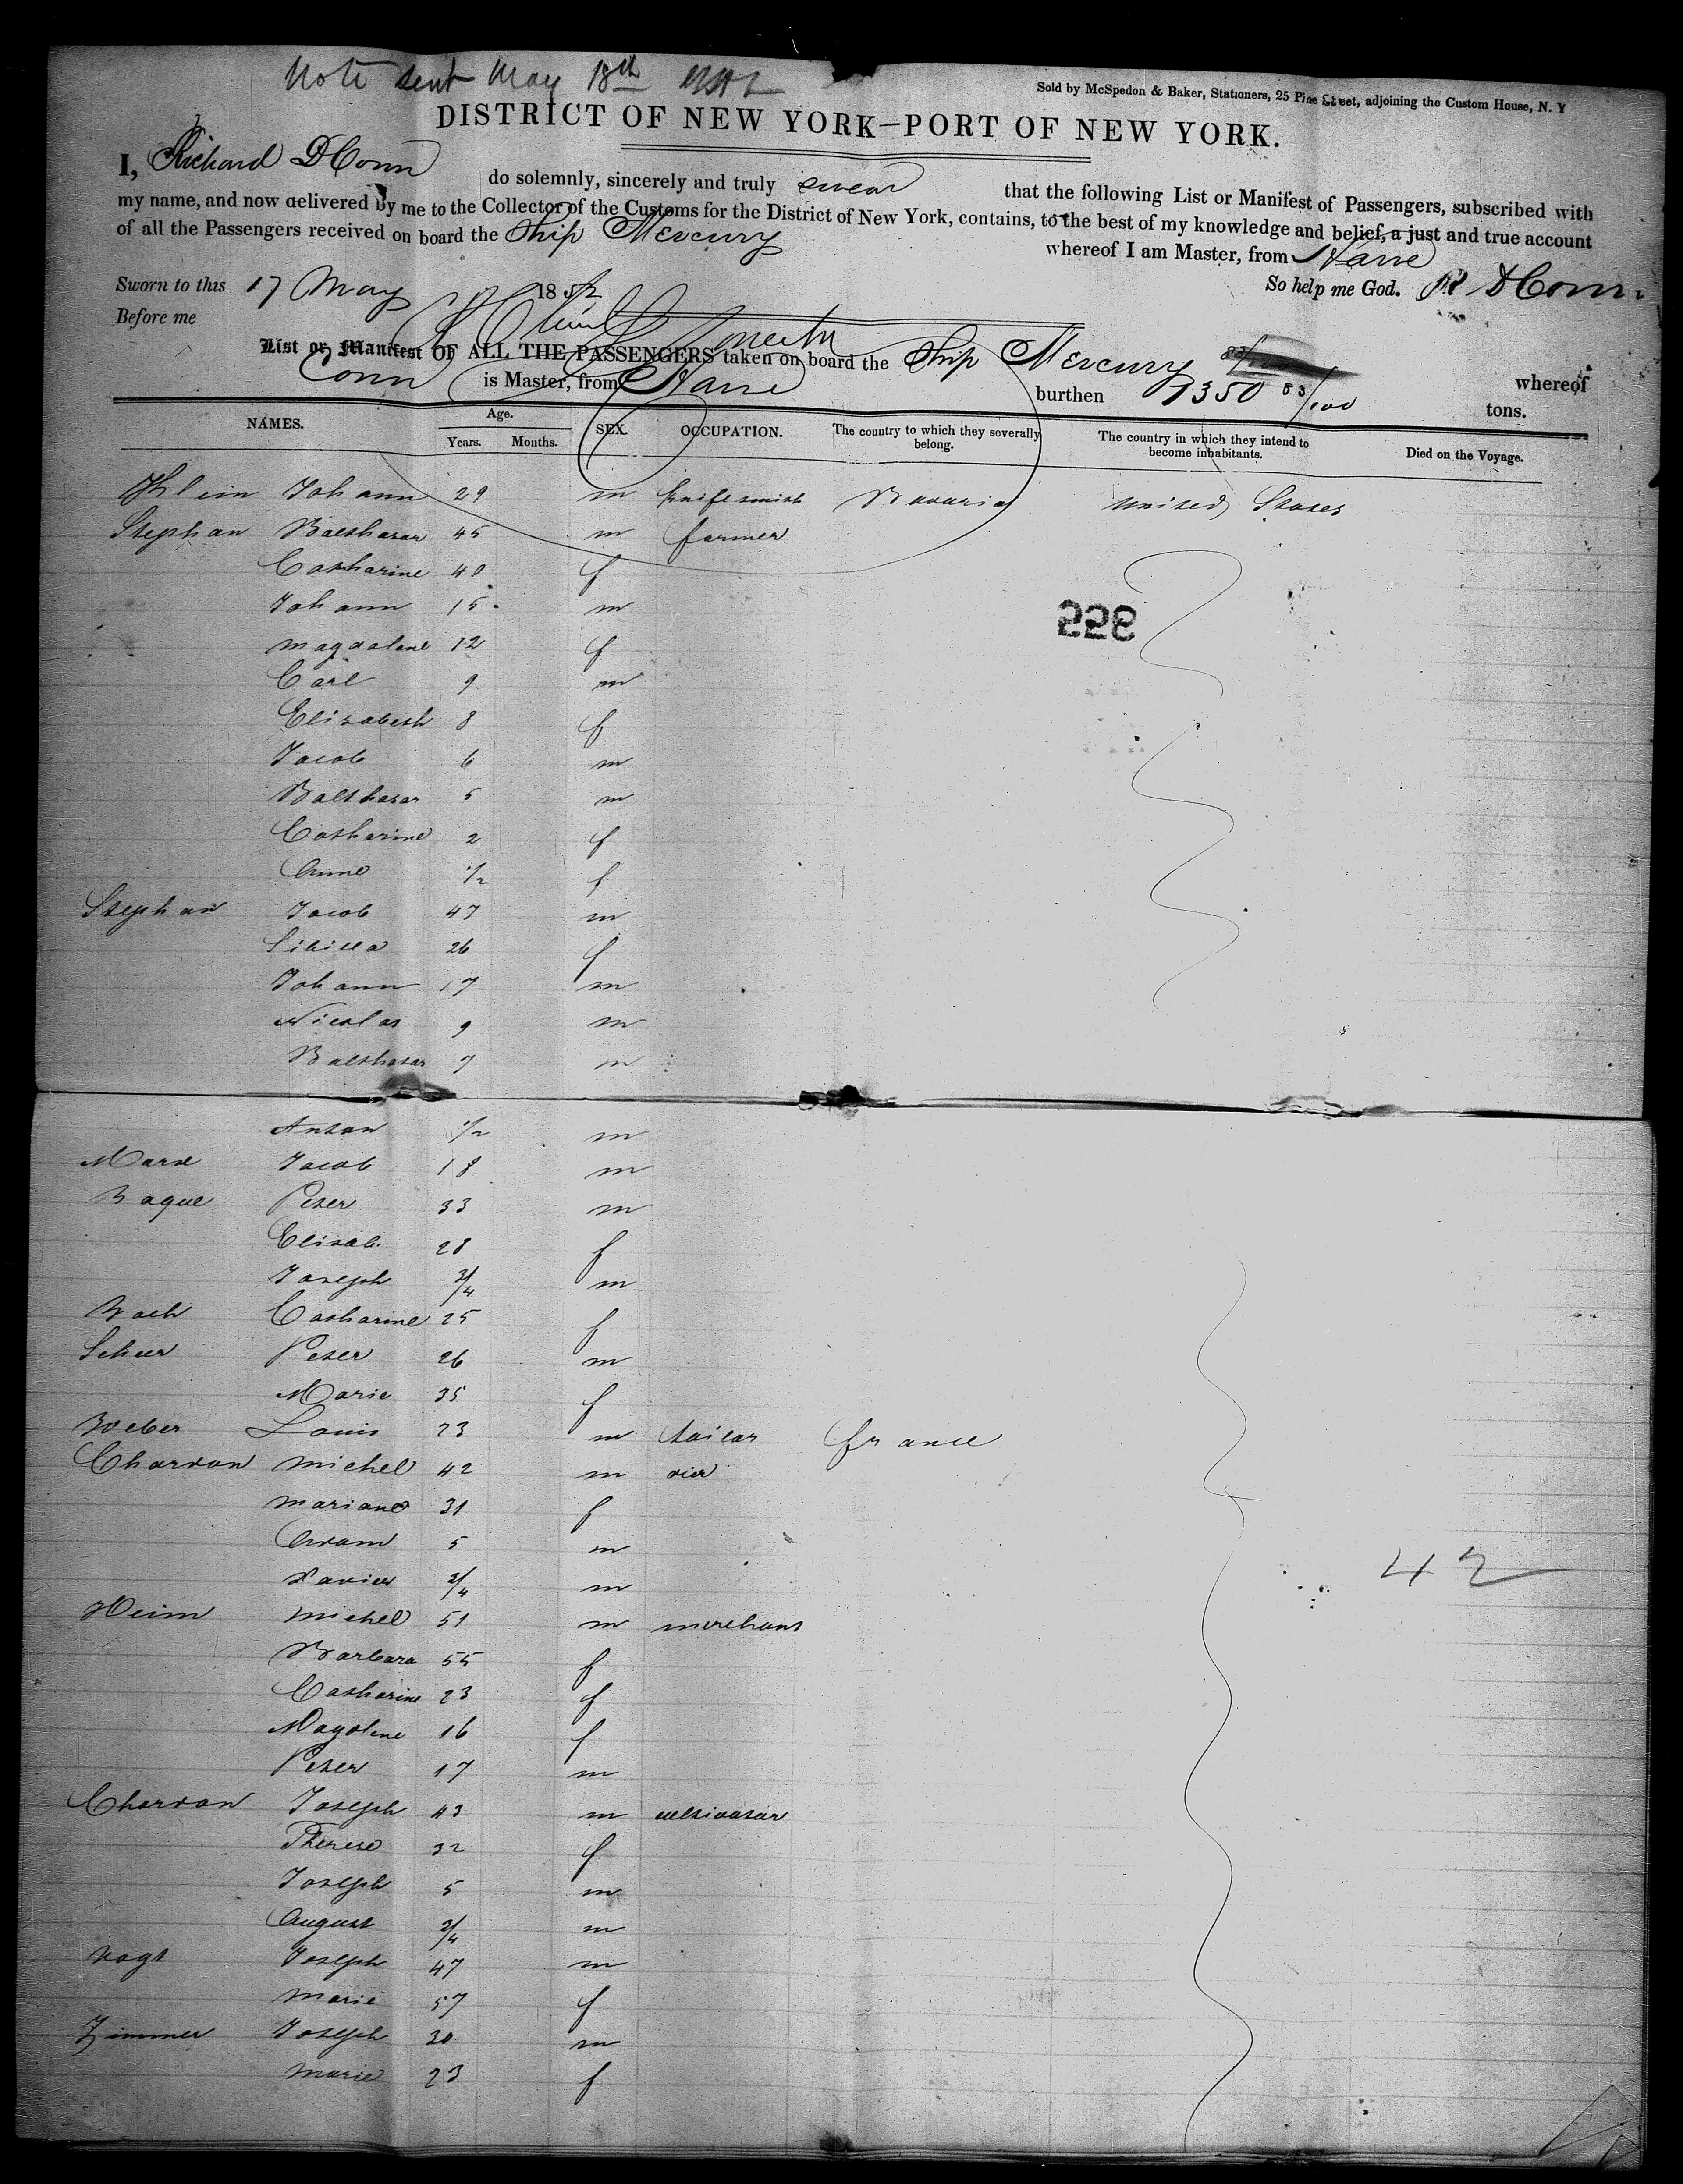 Note sent May 18th
Sold by McSpedon & Baker, Stationers, 25 Pine Street, adjoining the Custom House, N. Y
DISTRICT OF NEW YORK—PORT OF NEW YORK.
I, Richard D Conn do solemnly, sincerely and truly swear that the following List or Manifest of Passengers, subscribed with
my name, and now delivered by me to the Collector of the Customs for the District of New York, contains, to the best of my knowledge and belief, a just and true account
of all the Passengers received on board the Ship Mercury whereof I am Master, from Havre
Sworn to this 17 May 1852 So help me God. R D Conn
Before me
List or Manifest OF ALL THE PASSENGERS taken on board the Ship Mercury whereof
Conn is Master, from Havre burthen 1350 83/100 tons.
NAMES. Age. SEX. OCCUPATION. The country to which they severally belong. The country in which they intend to become inhabitants. Died on the Voyage.
Years. Months.
Klein Johann 29 m knifesmith Bavaria United States
Stephan Balthasar 45 m farmer
Catharine 40 f
Johann 15 m
228
Magdalene 12 f
Carl 9 m
Elisabeth 8 f
Jacob 6 m
Balthasar 5 m
Catharine 2 f
Anna 1/2 f
Stephan Jacob 47 m
Sibilla 26 f
Johann 17 m
Nicolas 9 m
Balthasar 7 m
Anton 1/2 m
Marx Jacob 18 m
Baque Peter 33 m
Elisab. 28 f
Joseph 3/4 m
Bach Catharine 25 f
Scheer Peter 26 m
Marie 35 f
Weber Louis 23 m tailor france
Chardon Michel 42 m
Mariane 31 f
Adam 5 m
Xavier 3/4 m
42
Heim Michel 51 m merchant
Barbara 55 f
Catharine 23 f
Magdlene 16 f
Peter 17 m
Chardon Joseph 43 m cultivator
Therese 32 f
Joseph 5 m
August 3/4 m
Vogt Joseph 47 m
Marie 57 f
Zimmer Joseph 30 m
Marie 23 f